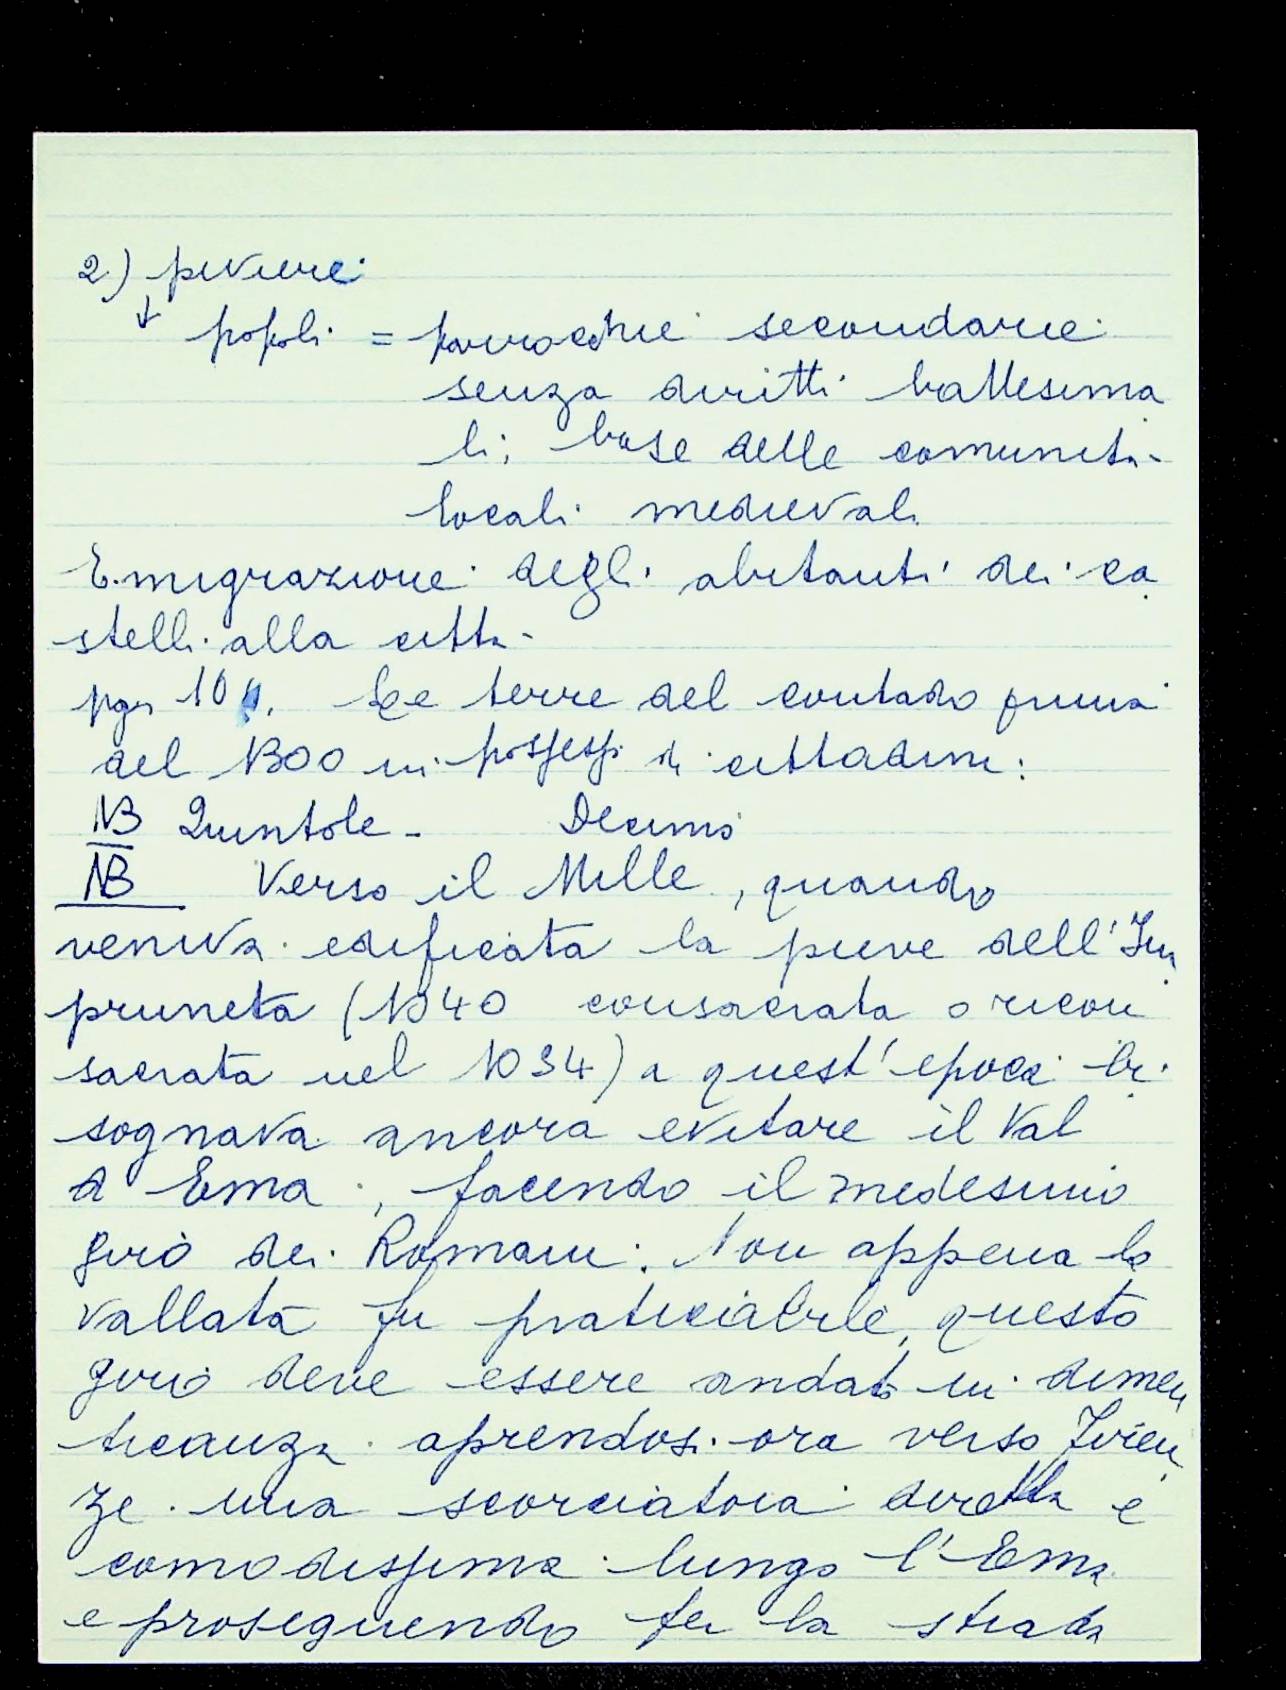 2) pivieri
↓
popoli = parrocchie secondarie
senza diritti battesima
li, base delle comunità
locali medievali
Emigrazione degli abitanti dei ca
stelli alla città
pga 10 . Le terre del contado prima
del 1300 in possessi di cittadini:
NB Quintole - Decimo
NB Verso il Mille, quando
veniva edificata la pieve dell'Im
pruneta (1040 consacrata o ricon
sacrata nel 1054) a quest'epoca bi
sognava ancora evitare il Val
d Ema, facendo il medesimo
giro dei Romani. Non appena la
vallata fu praticabile, questo
giro deve essere andato in dimen
ticanza aprendosi ora verso Firen
ze una scorciatoia diretta e
comodissima lungo l'Ema
e proseguendo per la strada